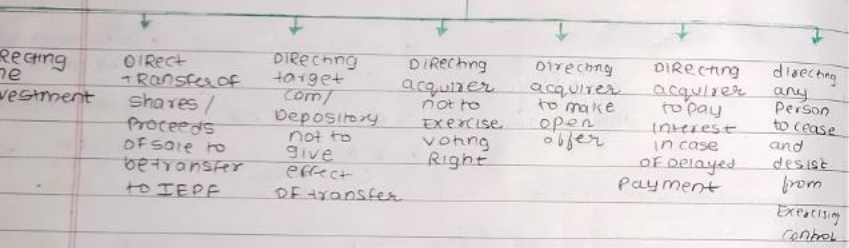 Recting
he
vestment
DIRect
transfer of
shares /
Proceeds
OF sale to
be transfer
to IEPF
DIRecting
target
com/
Depository
not to
give
effect
OF transfer
DIRecting
acquirer
not to
Exercise
voting
Right
Directing
acquirer
to make
open
offer
DIRecting
acquirer
to pay
interest
in case
OF Delayed
payment
directing
any
Person
to cease
and
desist
from
Exercising
control